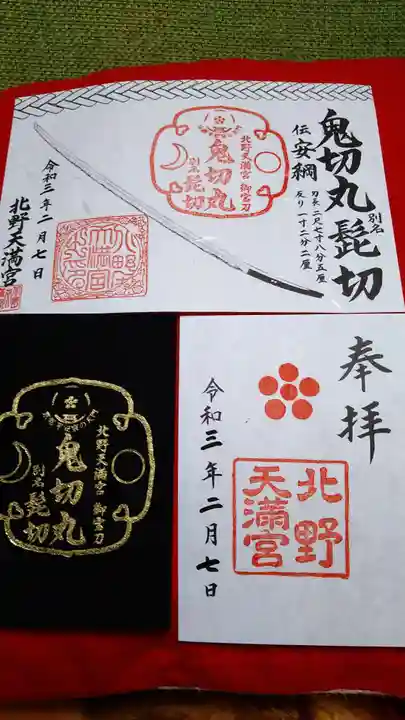 鬼切丸 別名 髭切
伝 安綱
刀長 二尺七寸八分五厘
反り 一寸二分二厘
北野天満宮 御宝刀
鬼切丸
別名 髭切
令和三年二月七日
北野天満宮
北野天満宮 御宝刀
鬼切丸
別名 髭切
奉拝
北野
天満宮
令和三年二月七日